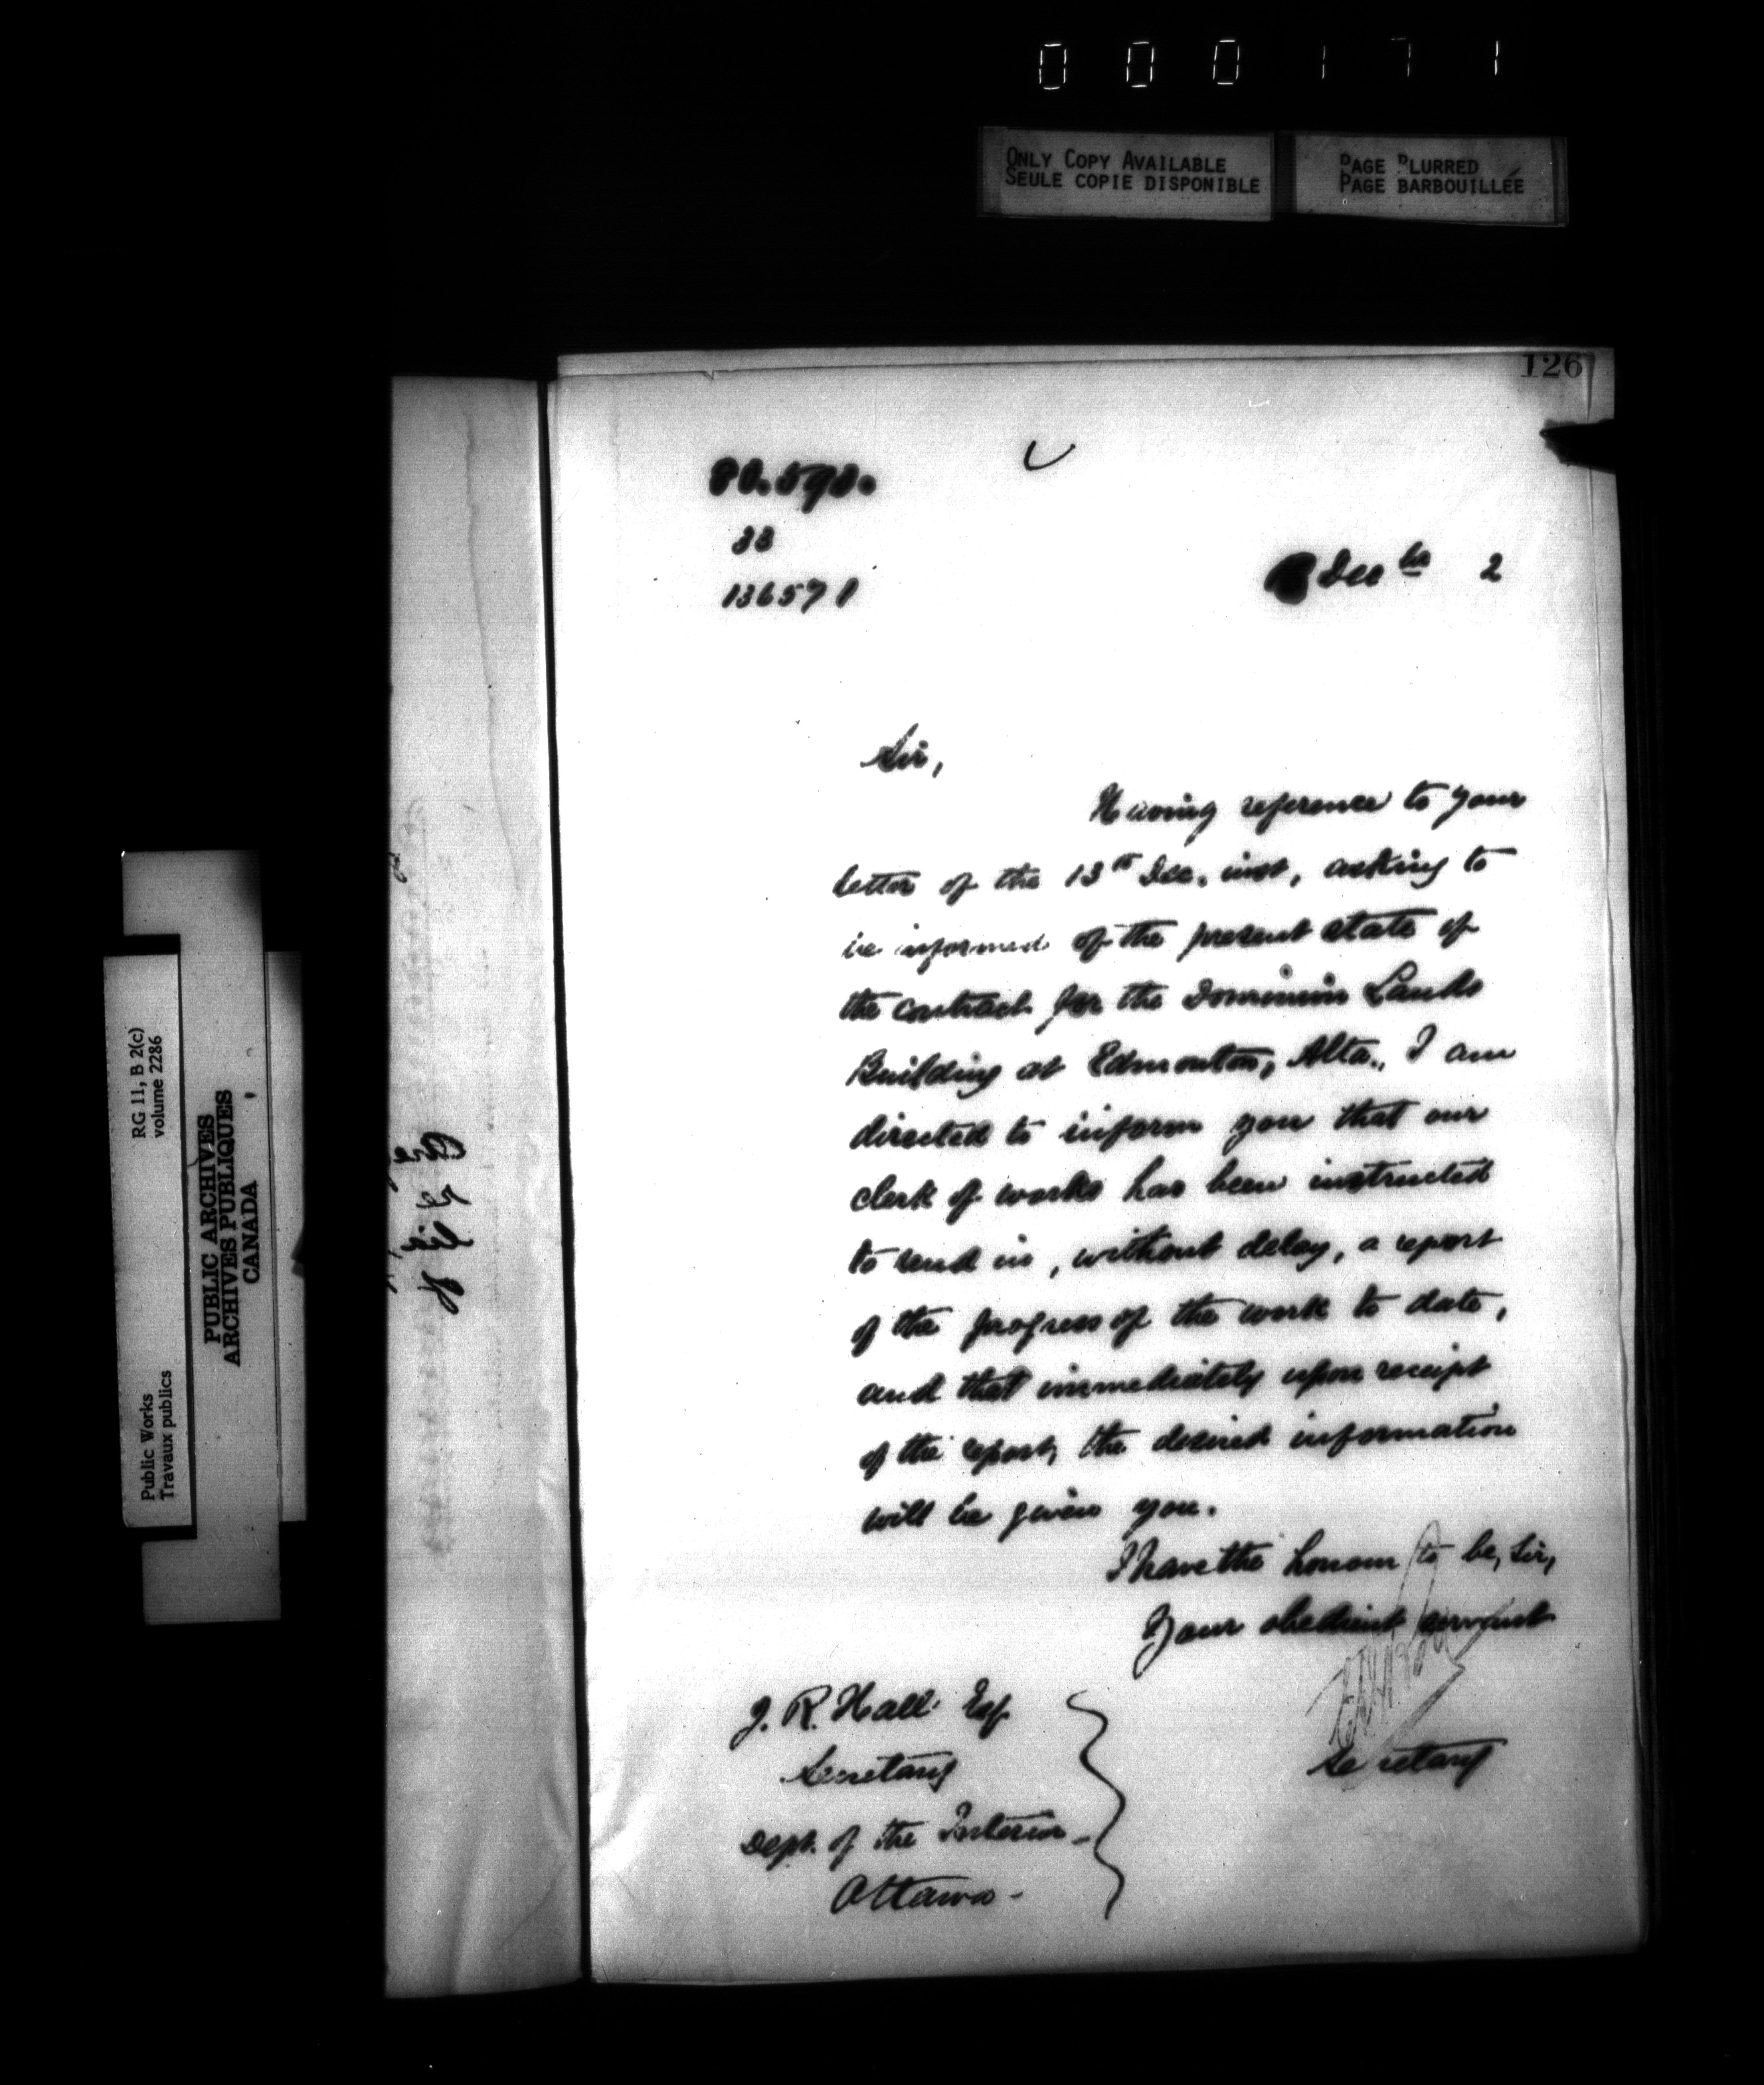 000171
ONLY COPY AVAILABLE
SEULE COPIE DISPONIBLE
PAGE BLURRED
PAGE BARBOUILLÉE
126
33
136571
Dec 2
Sir,
Having reference to your
letter of the 13th Dec. inst, asking to
be informed of the present state of
the contract for the Dominion Lands
Building at Edmonton, Alta., I am
directed to inform you that our
clerk of works has been instructed
to send in, without delay, a report
of the progress of the work to date,
and that immediately upon receipt
of the report, the desired information
will be given you.
I have the honour to be, Sir,
Your obedient servant
Secretary
J. R. Hall Esq
Secretary
Dept. of the Interior
Ottawa -
RG 11, B 2(c)
volume 2286
Public Works
Travaux publics
PUBLIC ARCHIVES
ARCHIVES PUBLIQUES
CANADA